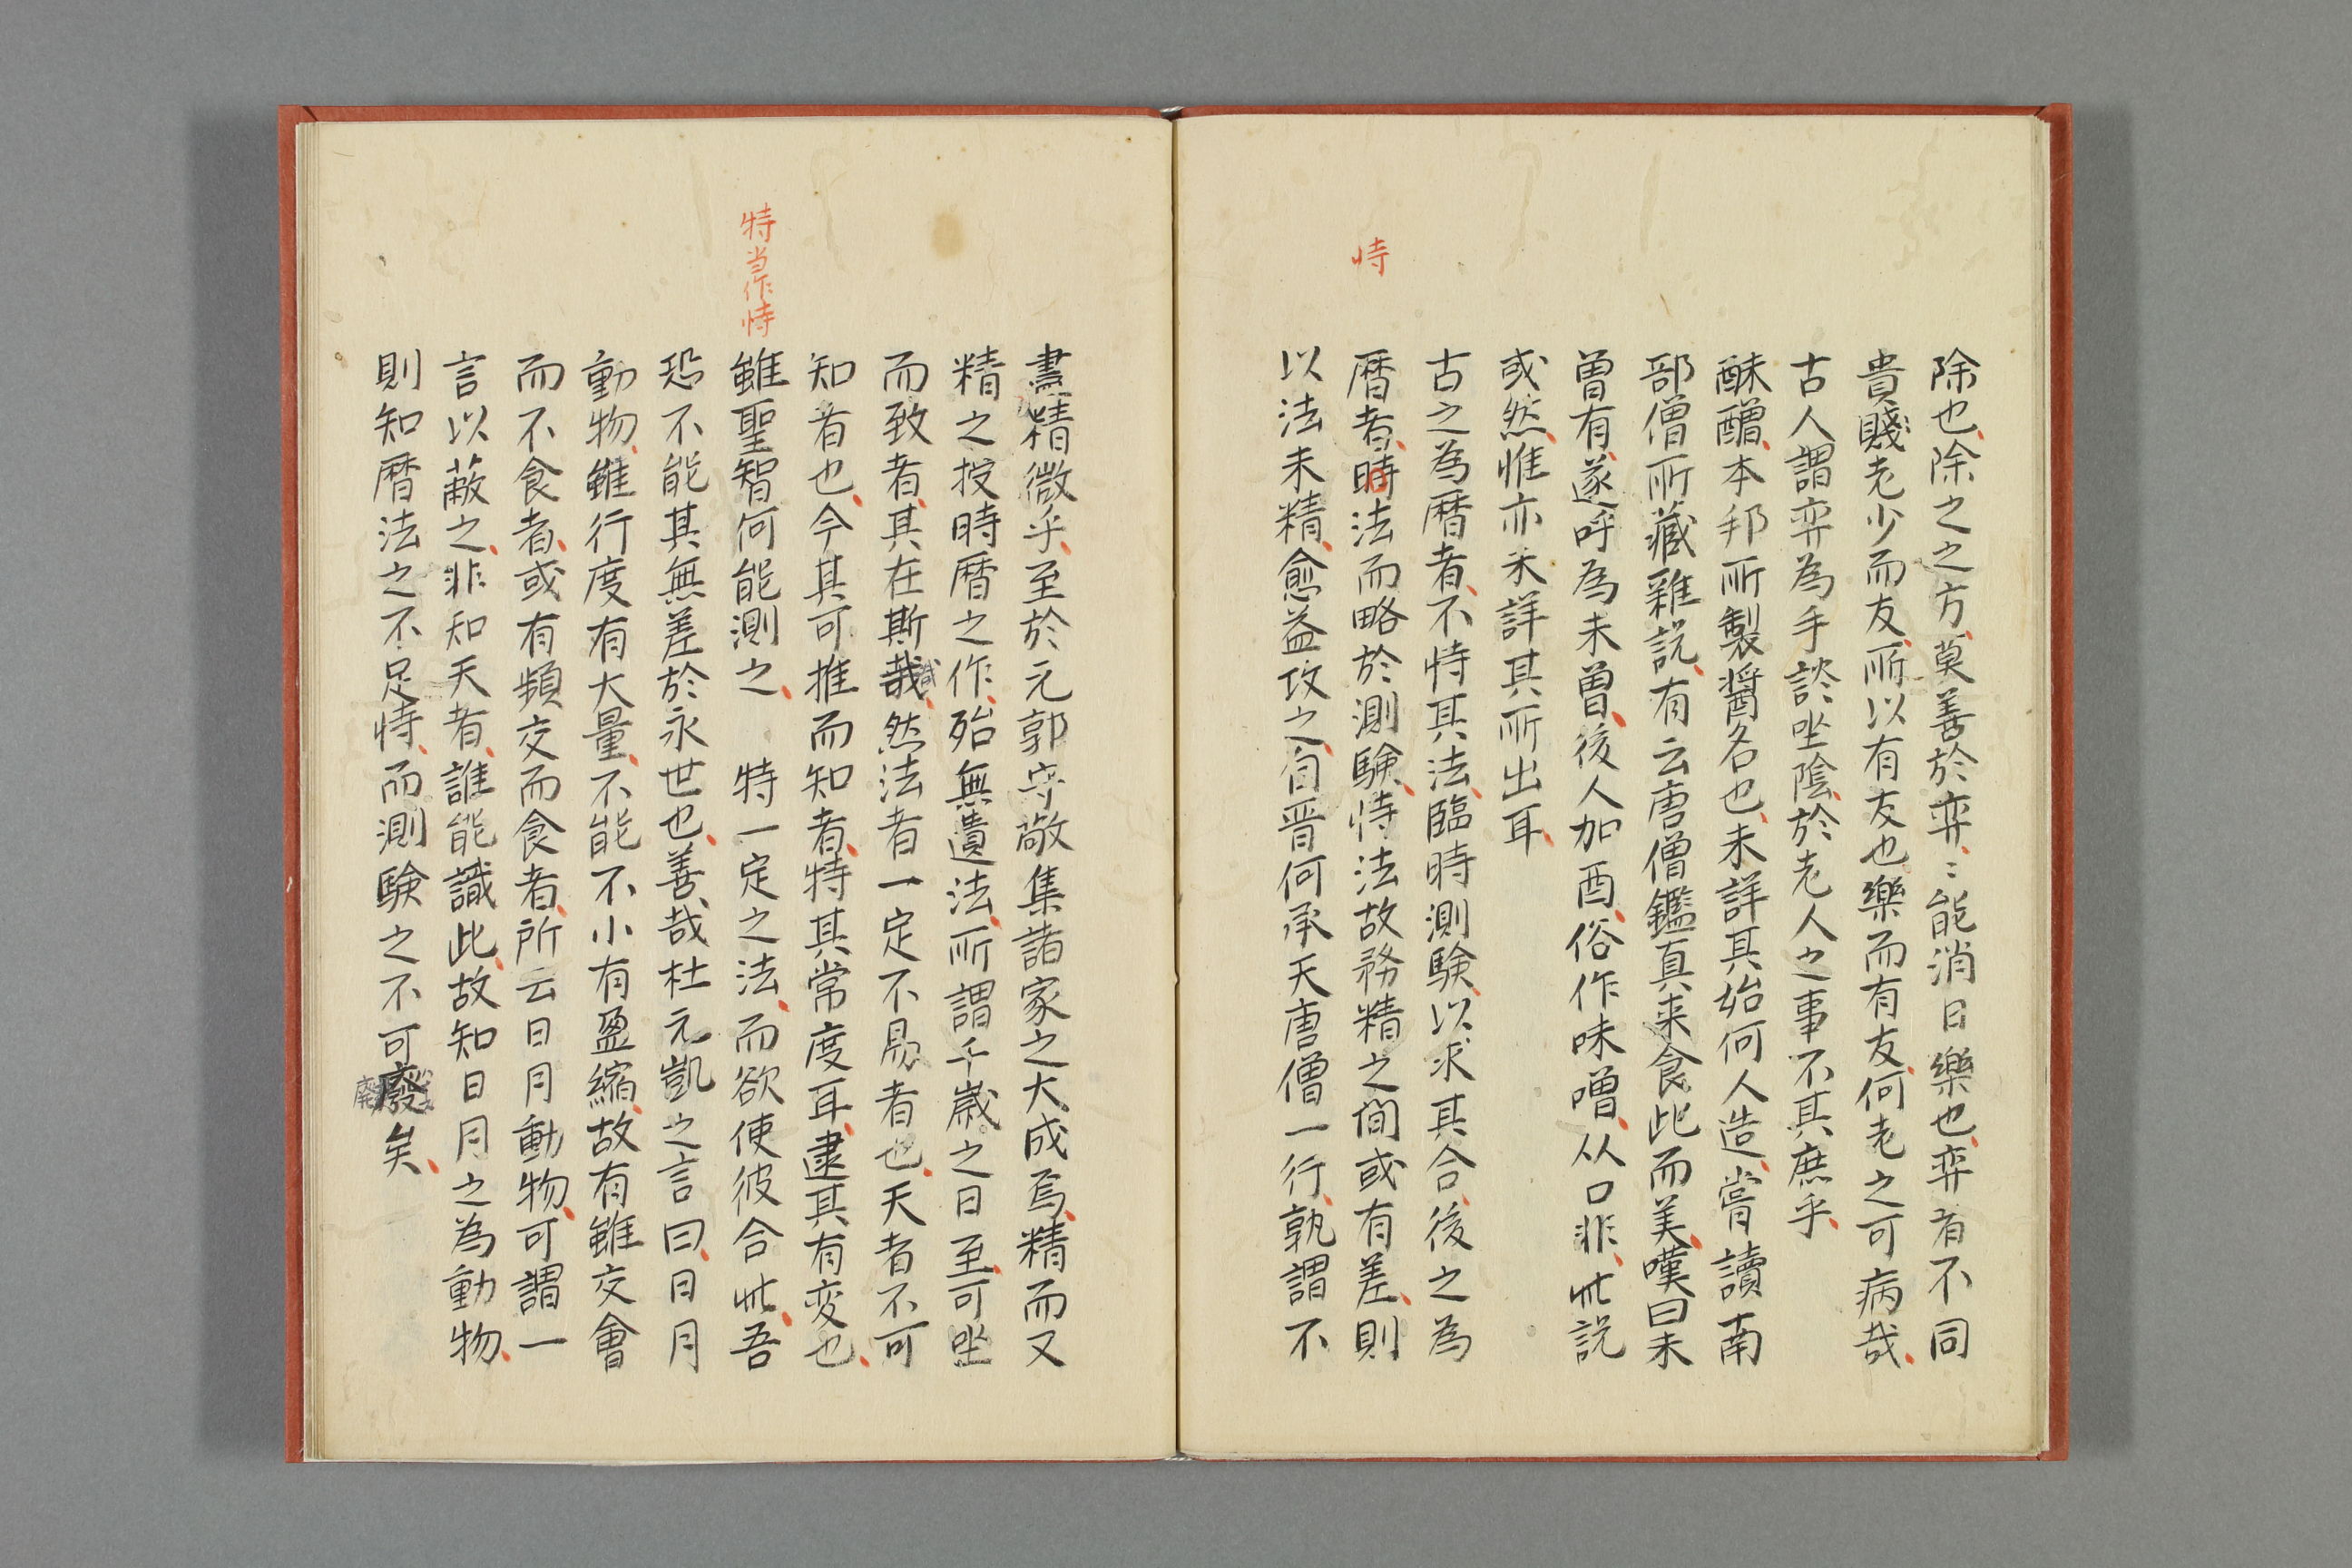 除也除之之方莫善於弈〻能消日樂也弈者不同
貴賤老少而友所以有友也樂而有友何老之可病哉
古人謂弈為手談坐隂於老人之事不其庶乎
酥醩本邦所製醤名也未詳其始何人造嘗讀南
部僧所藏雜説有云唐僧鑑真来食此而美嘆曰未
曽有遂呼為未曽後人加酉俗作味噌从口非此説
或然惟亦未詳其所出耳
古之為暦者不恃其法臨時測験以求其合後之為
恃
暦者時法而略於測験恃法故務精之間或有差則
以法未精愈益攻之自晋何承天唐僧一行孰謂不
盡精微乎至於元郭守敬集諸家之大成焉精而又
精之授時暦之作殆無遺法所謂千歳之日至可坐
而致者其在斯哉然法者一定不易者也天者不可
知者也今其可推而知者特其常度耳逮其有変也
特当作恃
雖聖智何能測之 特一定之法而欲使彼合此吾
恐不能其無差於永世也善哉杜元凱之言曰日月
動物雖行度有大量不能不小有盈縮故有雖交會
而不食者或有頻交而食者所云日月動物可謂一
言以蔽之非知天者誰能識此故知日月之為動物
則知暦法之不足恃而測験之不可廢矣
廢